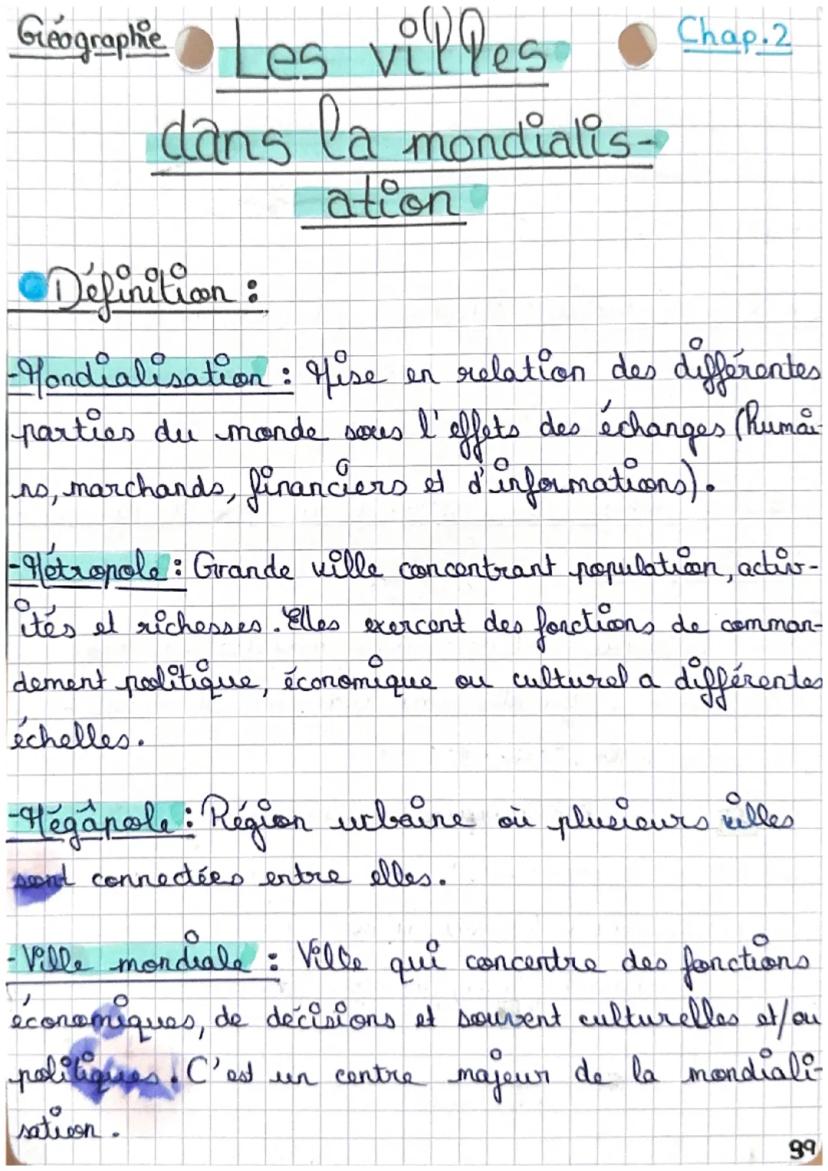 Géographie
Chap.2
Les villes
dans la mondialis-
ation
Définition :
-Mondialisation : Mise en relation des différentes
parties du monde sous l'effets des échanges (humai-
ns, marchands, financiers et d'informations).
-Métropole : Grande ville concentrant population, activ-
ités et richesses. Elles exercent des fonctions de comman-
dement politique, économique ou culturel a différentes
échelles.
-Mégapole : Région urbaine où plusieurs villes
sont connectées entre elles.
-Ville mondiale : Ville qui concentre des fonctions
économiques, de décisions et souvent culturelles et/ou
politiques. C'est un centre majeur de la mondiali-
sation.
99